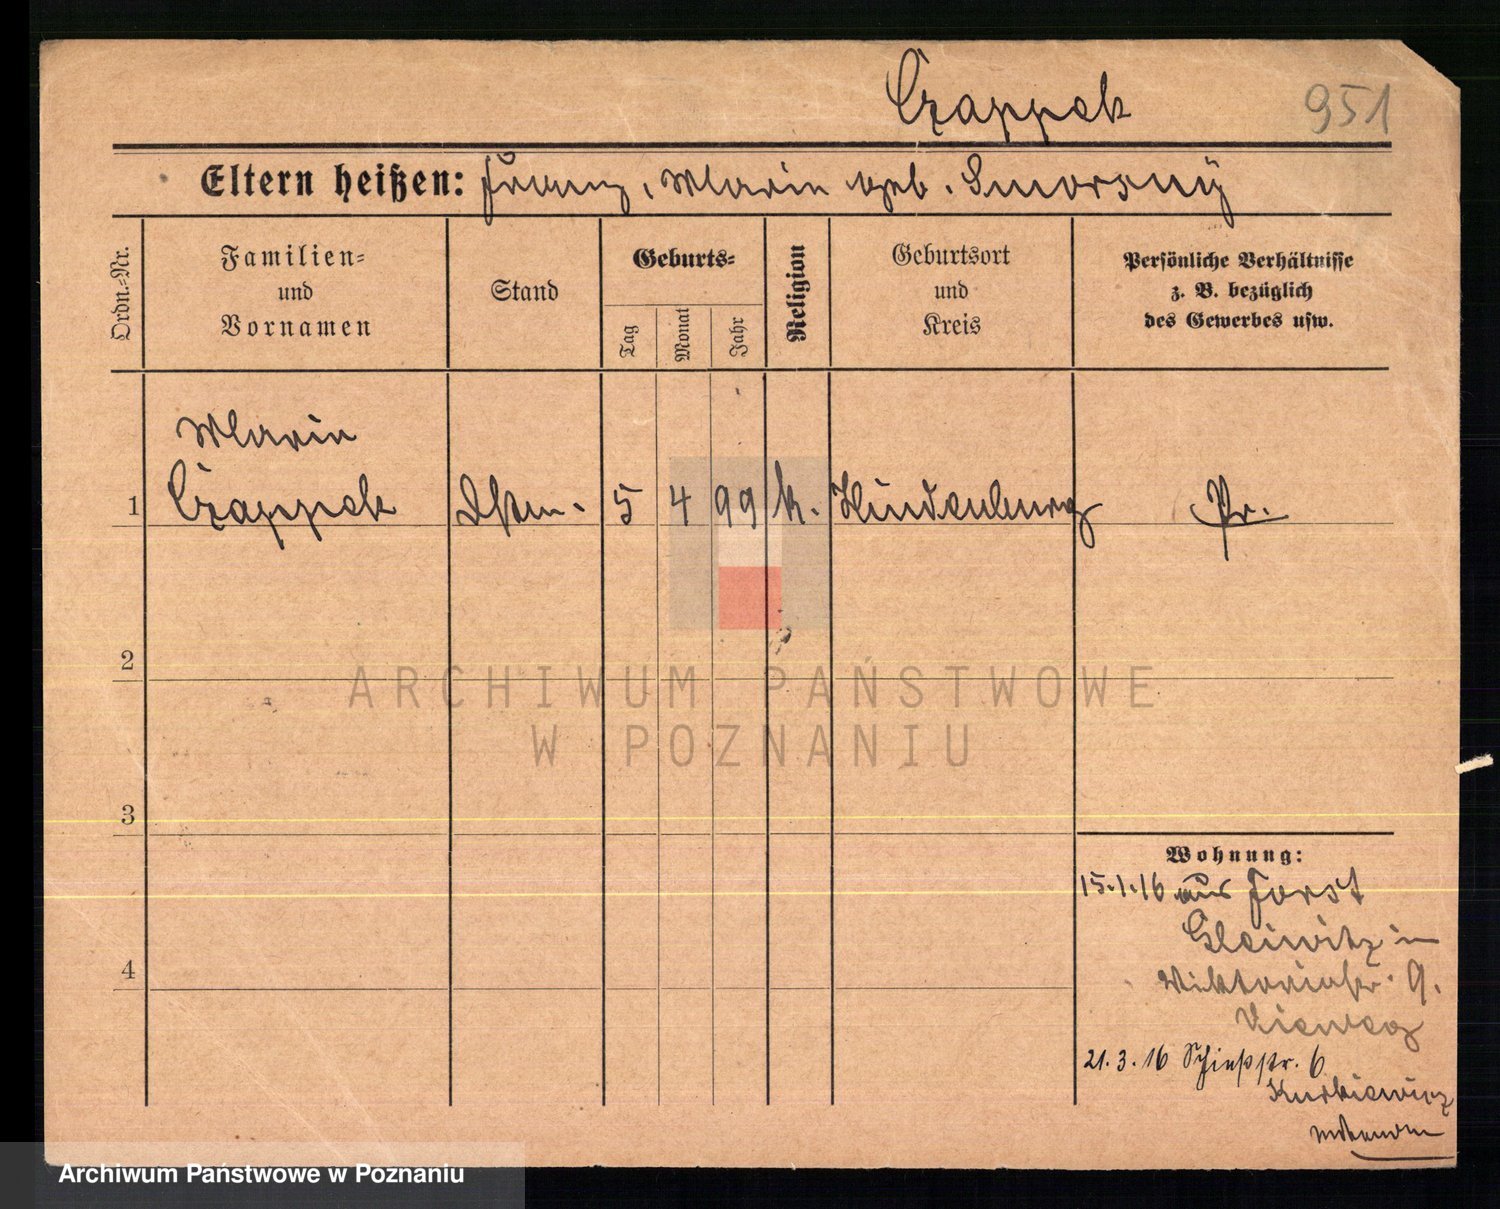 Czappek 951
Eltern heißen: Franz, Marie geb. Smorsny
Ordn.-Nr.
Familien-
und
Vornamen
Stand
Geburts-
Tag
Monat
Jahr
Religion
Geburtsort
und
Kreis
Persönliche Verhältnisse
z. B. bezüglich
des Gewerbes usw.
Marie
1 Czappek 5 4 99 k. Hindenburg Pr.
2
ARCHIWUM PAŃSTWOWE
W POZNANIU
3
Wohnung:
15.1.16 aus Forst
Gleiwitz in
4
Viktoriastr. 9.
21.3.16 Schießstr. 6
Kurkiewicz
Archiwum Państwowe w Poznaniu